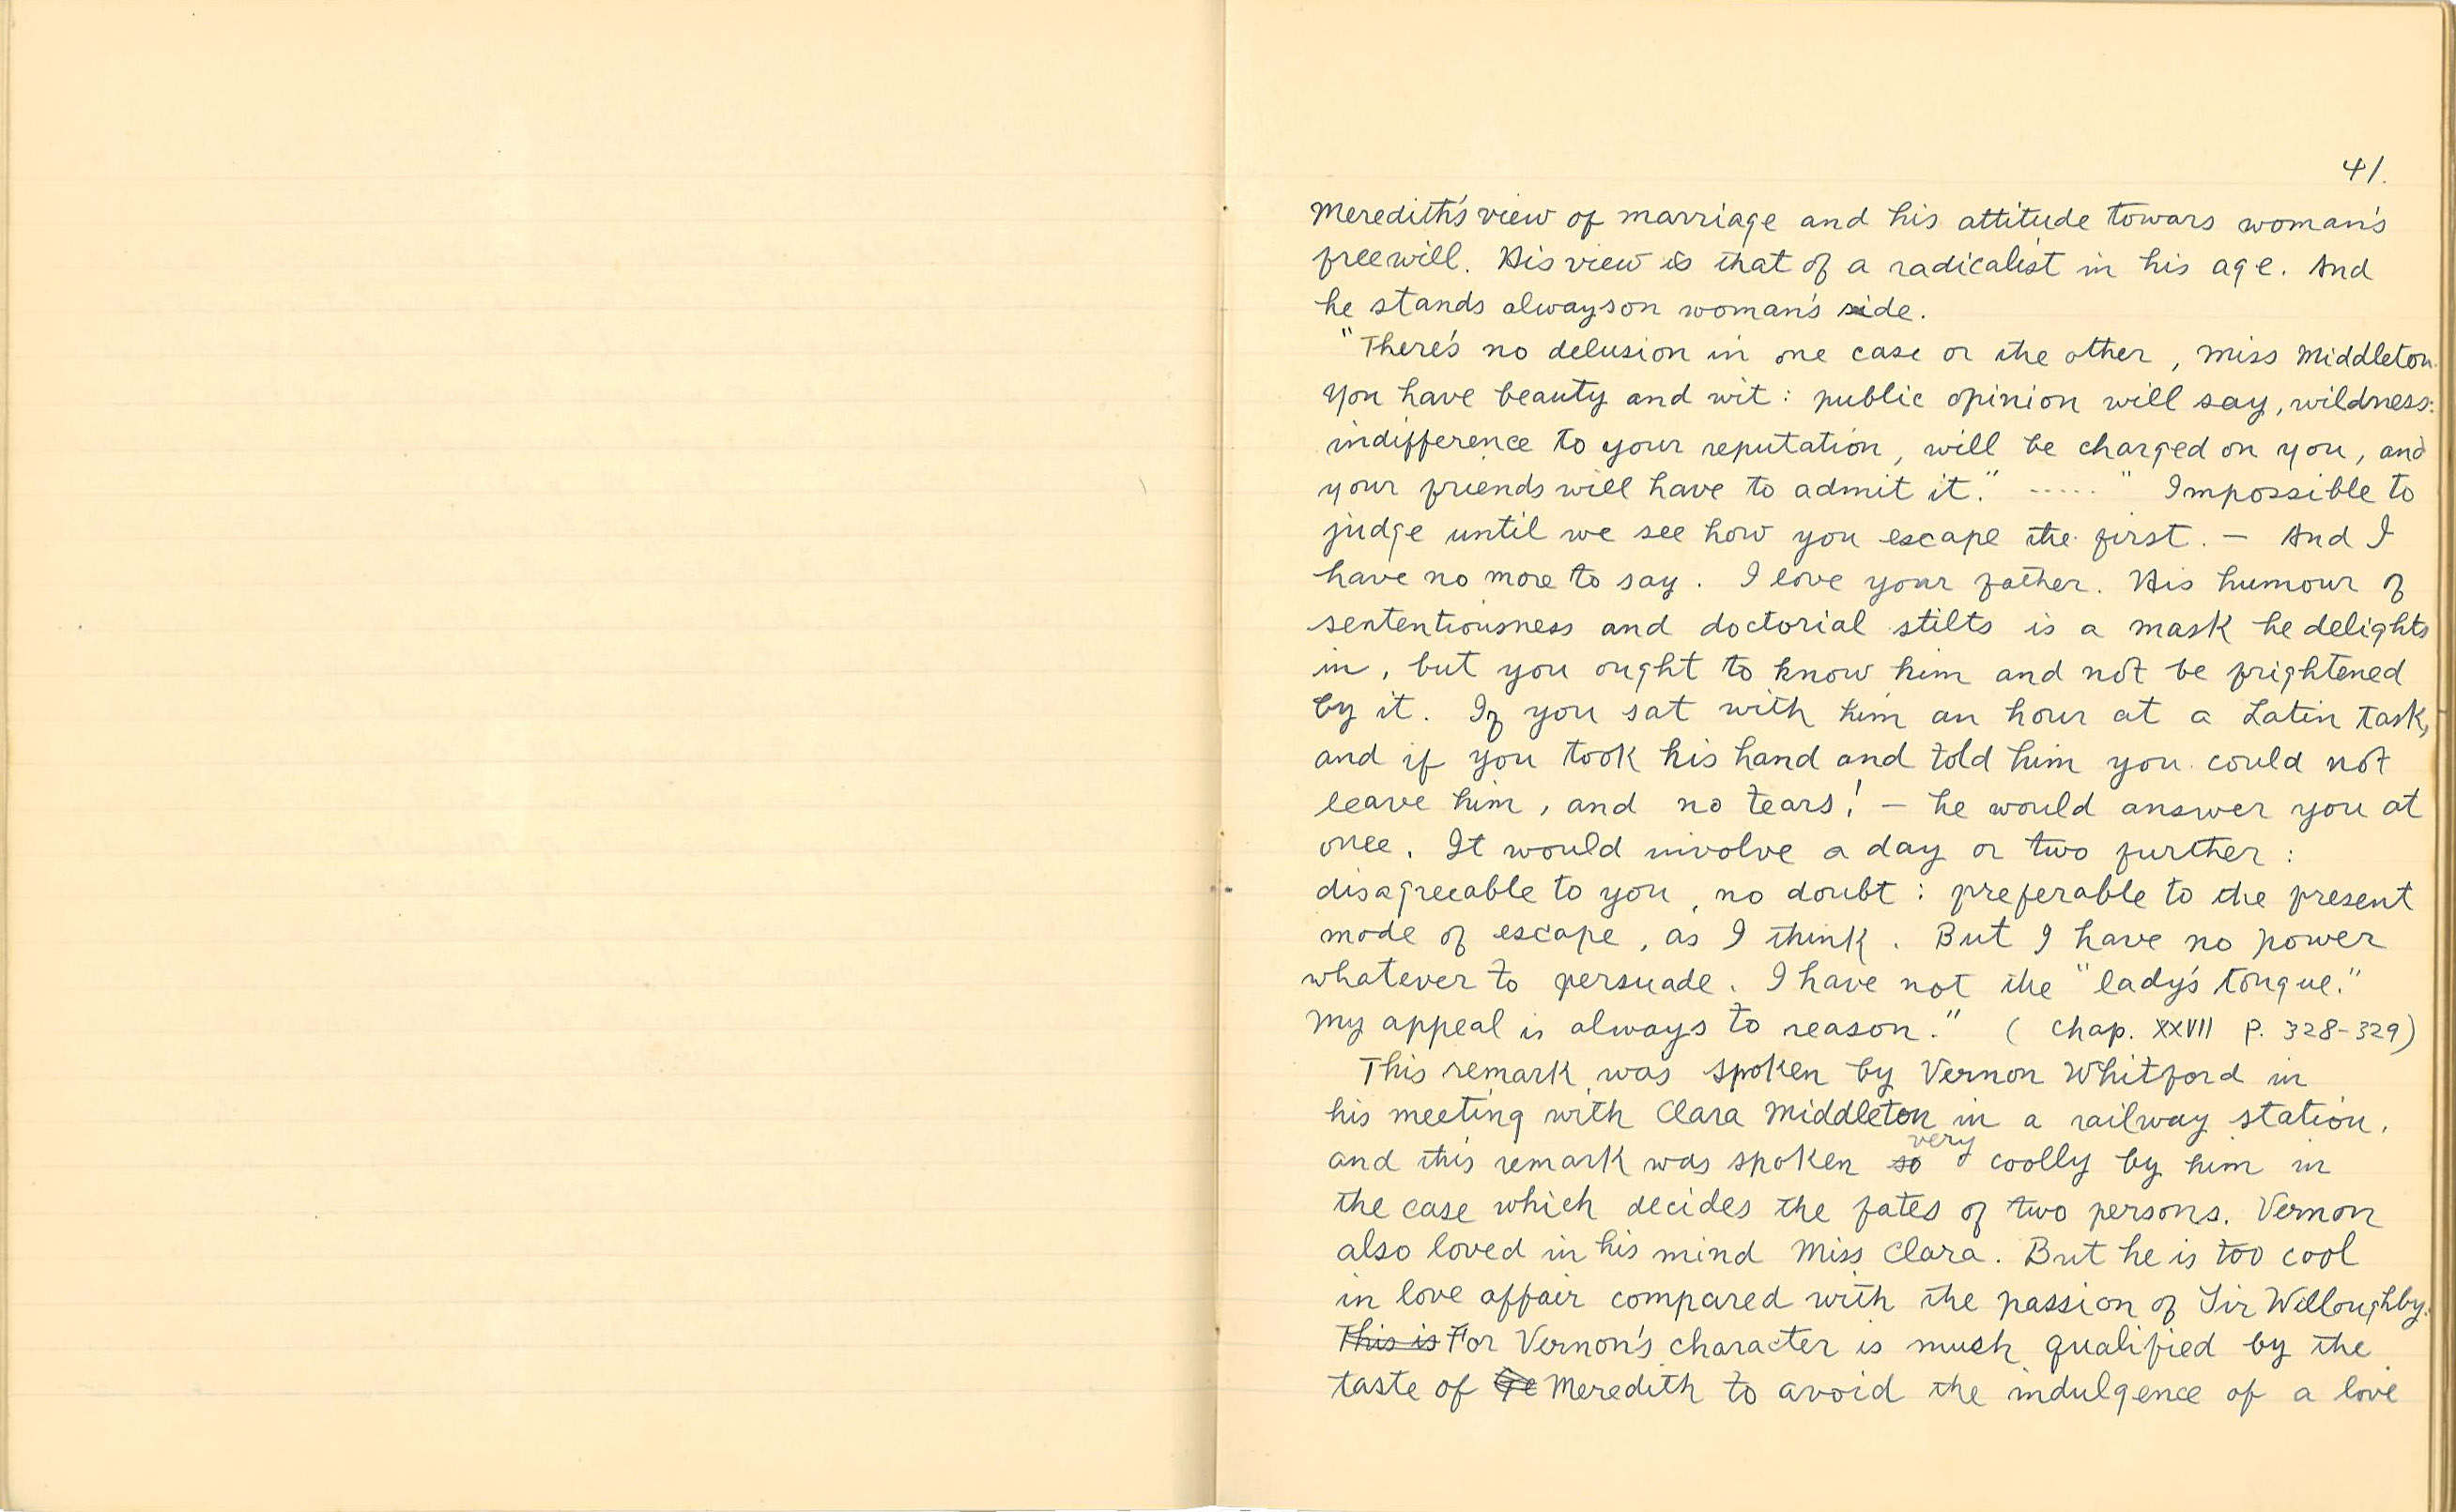 41.
Meredith's view of marriage and his attitude towars woman's
freewill. His view is that of a radicalist in his age. And
he stands always on woman's side.
"There's no delusion in one case or the other, Miss Middleton.
You have beauty and wit: public opinion will say, wildness:
indifference to your reputation, will be charged on you, and
your friends will have to admit it." ..... "Impossible to
judge until we see how you escape the first. — And I
have no more to say. I love your father. His humour of
sententiousness and doctorial stilts is a mask he delights
in, but you ought to know him and not be frightened
by it. If you sat with him an hour at a Latin task,
and if you took his hand and told him you could not
leave him, and no tears! — he would answer you at
once. It would involve a day or two further:
disagreeable to you, no doubt: preferable to the present
mode of escape, as I think. But I have no power
whatever to persuade. I have not the "lady's tongue."
My appeal is always to reason." (Chap. XXVII P. 328-329)
This remark was spoken by Vernon Whitford in
his meeting with Clara Middleton in a railway station.
and this remark was spoken so very coolly by him in
the case which decides the fates of two persons. Vernon
also loved in his mind Miss Clara. But he is too cool
in love affair compared with the passion of Sir Willoughby.
This is For Vernon's character is much qualified by the
taste of Meredith to avoid the indulgence of a love